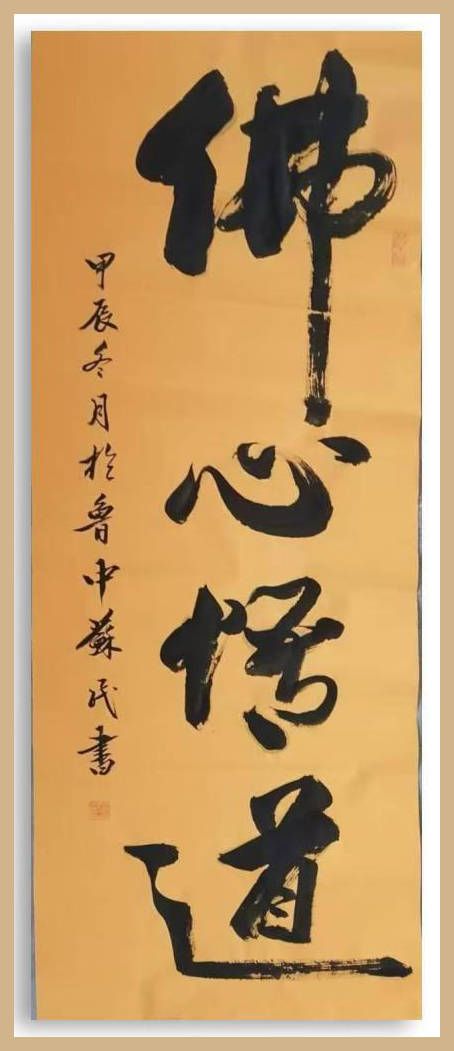 佛心悟道
甲辰冬月於魯中蘇民書